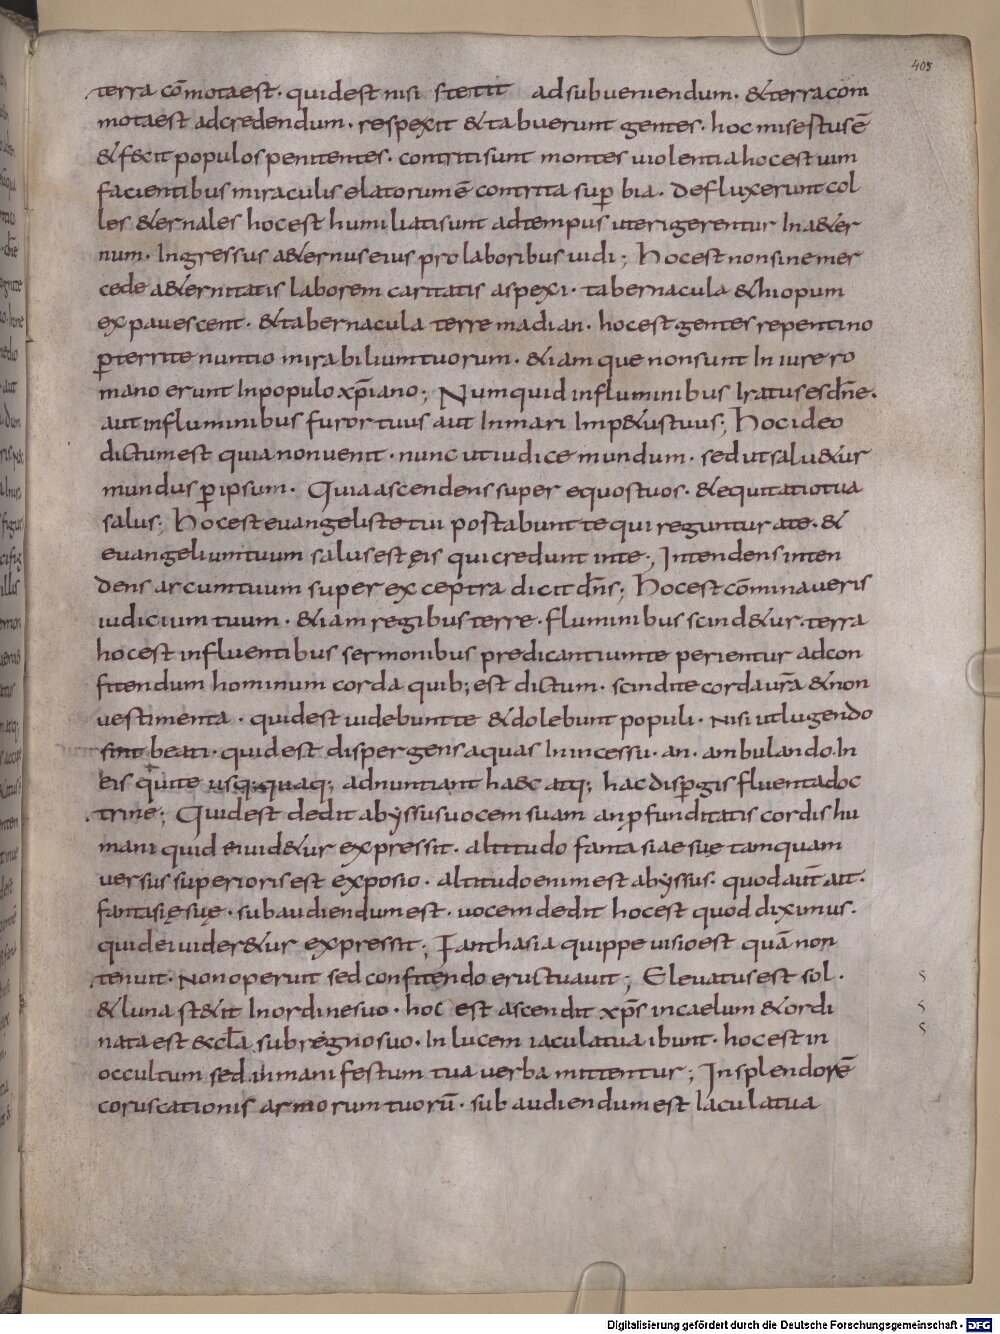 405
terra cōmota est· quid est nisi stetit ad subueniendum· & terra com
mota est ad credendum· respexit & tabuerunt gentes· hoc misertus ē
& fecit populos penitentes· contriti sunt montes uiolentia hoc est uim
facientibus miraculis elatorum ē contrita sup̄bia· Defluxerunt col
les &ernales hoc est humiliati sunt ad tempus ut erigerentur In a&er
num· Ingressus a&ernus eius pro laboribus uidi; Hoc est non sine mer
cede a&ernitatis laborem caritatis aspexi· tabernacula &hiopum
expauescent· & tabernacula terre madian· hoc est gentes repentino
p̄territe nuntio mirabilium tuorum· & iam que non sunt In iure ro
mano erunt In populo xp̄iano; Numquid in fluminibus Iratus es dn̄e·
aut in fluminibus furor tuus aut In mari Imp&us tuus; Hoc ideo
dictum est quia non uenit· nunc ut iudice mundum· sed ut salu&ur
mundus p̄ ipsum· Quia ascendens super equos tuos· & equitatio tua
salus; Hoc est euangeliste tui portabunt te qui reguntur a te· &
euangelium tuum salus est eis qui credunt in te; Intendens inten
dens arcum tuum super exceptra dicit dn̄s; Hoc est cōminaueris
iudicium tuum· & iam regibus terre· fluminibus scind&ur· terra
hoc est influentibus sermonibus predicantium te perientur ad con
fitendum hominum corda quib; est dictum· scindite corda ur̄a & non
uestimenta· quid est uidebunt te & dolebunt populi· Nisi ut lugendo
sint beati· quid est dispergens aquas In incessu· an· ambulando· In
eis qui te usq;quaq; adnuntiant haec atq; hac disp̄gis fluenta doc
trine; Quid est dedit abyssus uocem suam an p̄funditatis cordis hu
mani quid ei uid&ur expressit· altitudo fantasiae suę tamquam
uersus superioris est exposio· altitudo enim est abyssus· quod aūt ait·
fantasię suę· subaudiendum est· uocem dedit hoc est quod diximus·
quid ei uider&ur expressit; Fanthasia quippe uisio est quā non
tenuit· Non operuit sed confitendo eructuauit; Eleuatus est sol·
& luna st&it In ordine suo· hoc est ascendit xp̄s in caelum & ordi
nata est &ccl̄a sub regno suo· In lucem iacula tua ibunt· hoc est in
occultum sed in manifestum tua uerba mittentur; In splendorē
coruscationis armorum tuorū· subaudiendum est Iacula tua
Digitalisierung gefördert durch die Deutsche Forschungsgemeinschaft - DFG